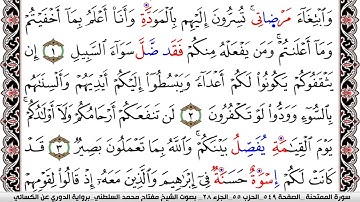 وَابْتِغَاءَ مَرْضَاتِي تُسِرُّونَ إِلَيْهِم بِالْمَوَدَّةِ وَأَنَا أَعْلَمُ بِمَا أَخْفَيْتُمْ
وَمَا أَعْلَنتُمْ وَمَن يَفْعَلْهُ مِنكُمْ فَقَد ضَّلَّ سَوَاءَ السَّبِيلِ ١ إِن
يَثْقَفُوكُمْ يَكُونُوا لَكُمْ أَعْدَاءً وَيَبْسُطُوا إِلَيْكُمْ أَيْدِيَهُمْ وَأَلْسِنَتَهُم
بِالسُّوءِ وَوَدُّوا لَوْ تَكْفُرُونَ ٢ لَن تَنفَعَكُمْ أَرْحَامُكُمْ وَلَا أَوْلَادُكُمْ
يَوْمَ الْقِيَامَةِ يُفَصِّلُ بَيْنَكُمْ وَاللَّهُ بِمَا تَعْمَلُونَ بَصِيرٌ ٣ قَدْ
كَانَتْ لَكُمْ إِسْوَةٌ حَسَنَةٌ فِي إِبْرَاهِيمَ وَالَّذِينَ مَعَهُ إِذْ قَالُوا لِقَوْمِهِمْ
سورة الممتحنة . الصفحة ٥٤٩ . الجزء ٥٥ . الجزء ٢٨ . بصوت الشيخ مفتاح محمد السلطني . برواية الدوري عن الكسائي